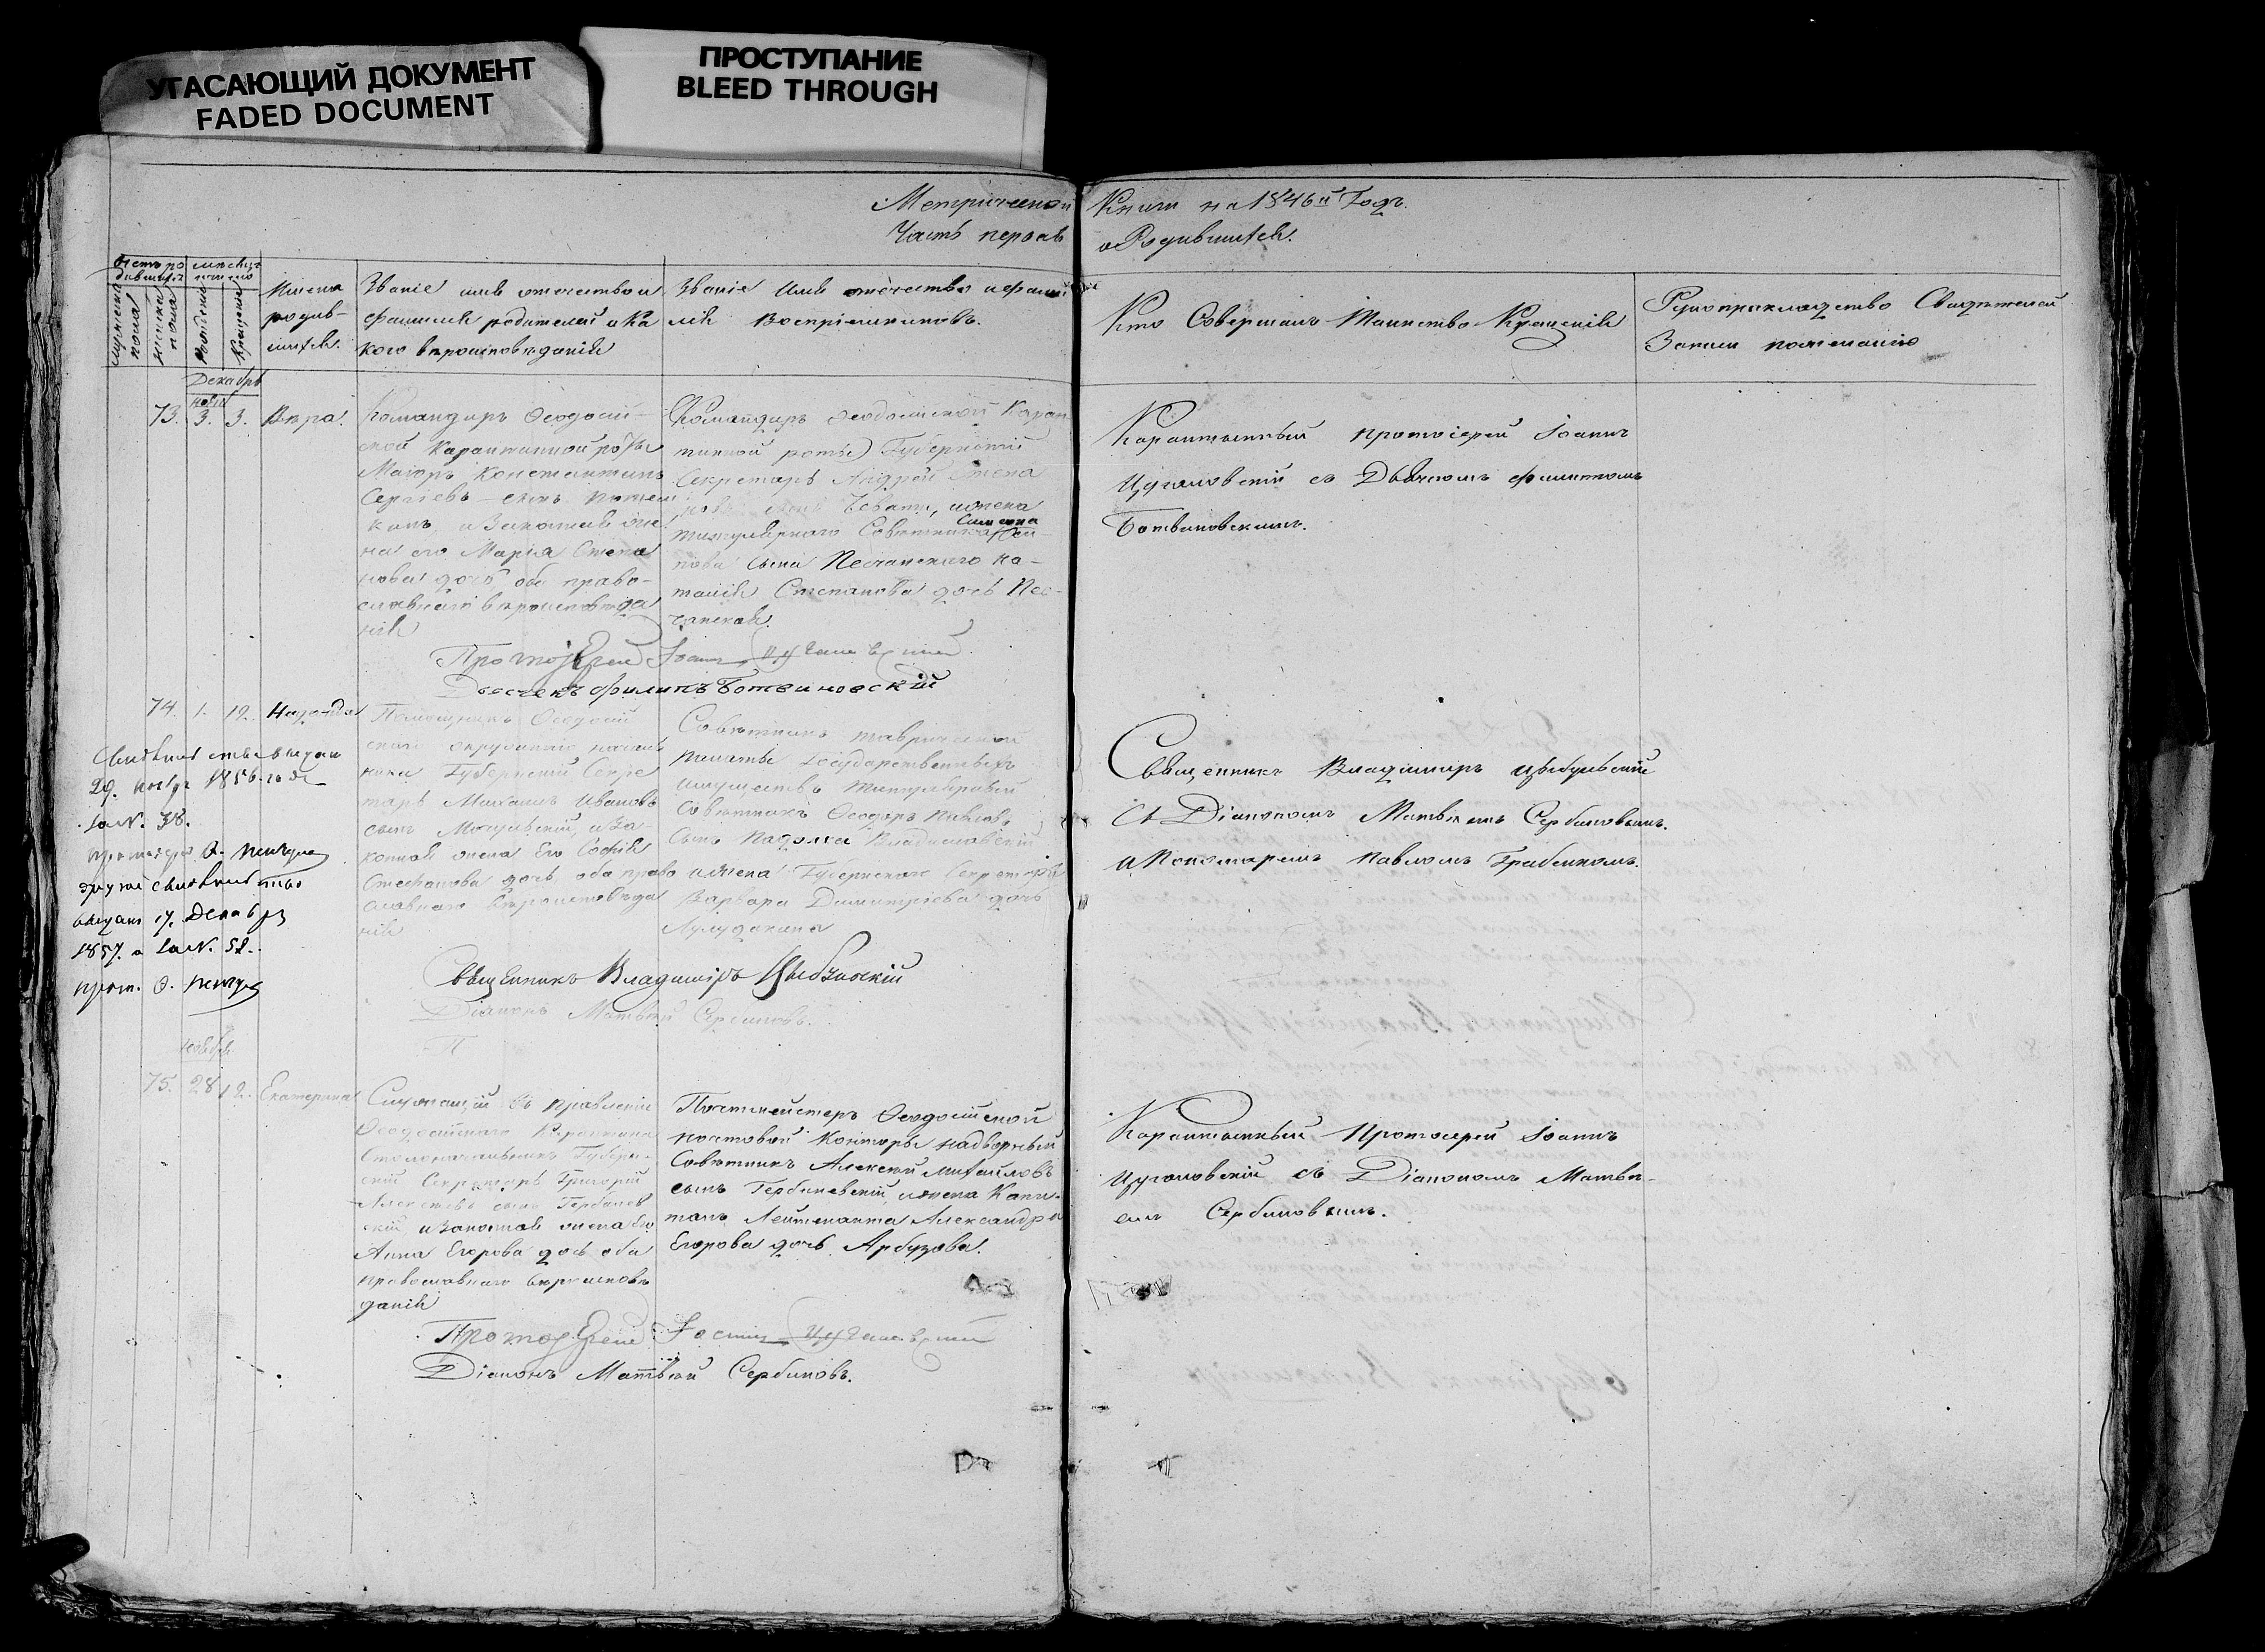 УГАСАЮЩИЙ ДОКУМЕНТ
FADED DOCUMENT
ПРОСТУПАНИЕ
BLEED THROUGH
Метрической Книги на 1846й Годъ.
Часть первая о Родившихся.
мужеска пола
женска пола
Рожденiе
Крещенiе
Имена
родив-
шихся.
Званiе имя отчество и
фамилiя родителей и ка
кого вероисповѣданiя
Званiе Имя отчество и фами
лiя Воспрiемниковъ.
Кто Совершалъ Таинство Крещенiя
Рукоприкладство Свидѣтелей
Записи по желанiю
Декабрь
73. 3. 3. Вѣра.
Командиръ Ѳеодосiй-
ской Карантинной роты
Маiоръ Константинъ
Сергѣевъ сынъ
канъ и Законная же
на его Марiя Степа
нова дочь оба право-
славнаго вѣроисповѣда
нiя
Командиръ Ѳеодосiйской Каран
тинной роты Губернскiй
Секретарь Андрей Степа
сынъ и жена
титулярнаго Совѣтника
нова сына Песчанскаго На-
талiя Степанова дочь Пес-
чанская.
Карантинный протоiерей Iоаннъ
Цугаловскiй съ Дьячкомъ Филиппомъ
Ботвиновскимъ.
Протоiерей Iоаннъ Цугаловскiй
Дьячекъ Филипъ Ботвиновскiй
74. 1. 12. Надежда
Помощникъ Ѳеодосiй
скаго окружнаго началь
ника Губернскiй Секре
тарь Михаилъ Ивановъ
сынъ и за-
конная жена Его Софiя
Стефанова дочь, оба право
славнаго Вѣроисповѣда
нiя
Совѣтникъ таврической
палаты Государственныхъ
имуществъ Титулярный
Совѣтникъ Ѳеодоръ Павловъ
Сынъ Владиславскiй
и жена Губернскаго Секретаря
Варвара Димитрiева дочь
Лулудакина
Священникъ Владимиръ Цыбульскiй
Съ Дiакономъ Матвѣемъ Сербиновымъ.
и Пономаремъ Павломъ Грабенкомъ.
29. 1856. года
за N. 38.
выдано 17. Декабря
1857. за N. 52.
Священникъ Владимiръ Цыбульскiй
Дiаконъ Матвѣй Сербиновъ.
Ноября
75. 28 12. Екатерина
Служащiй въ правленiи
Ѳеодосiйскаго Карантина
Столоначальникъ Губерн-
скiй Секретарь Григорiй
Алексѣевъ сынъ Гербанев
скiй и Законная жена его
Анна Егорова дочь оба
православнаго вѣроисповѣ
данiя
Почтмейстеръ Ѳеодосiйской
почтовой Конторы надворный
Совѣтникъ Алексѣй Михайловъ
сынъ Гербаневскiй, и жена Капи-
танъ Лейтенанта Александра
Егорова дочь Арбузова.
Карантинный Протоiерей Iоаннъ
Цугаловскiй съ Дiакономъ Матвѣ-
емъ Сербиновымъ.
Протоiерей Iоаннъ Цугаловскiй
Дiаконъ Матвѣй Сербиновъ.